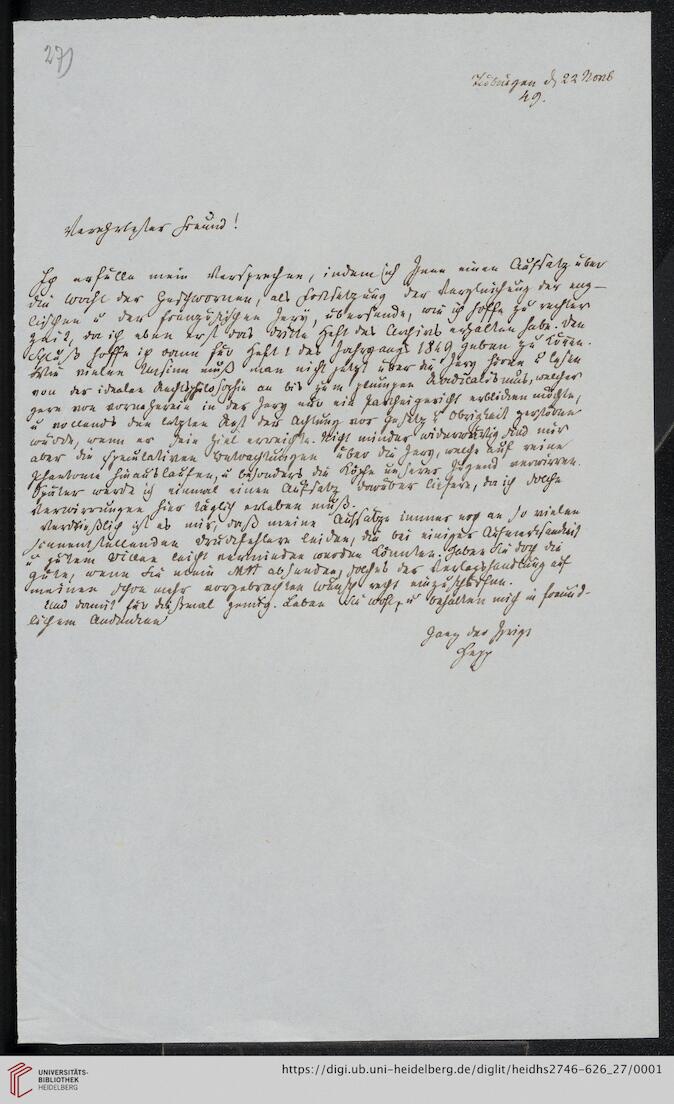 27)
Tübingen d 22 Novb
49.
Verehrtester Freund!
Ich erfülle mein Versprechen, indem ich Ihnen einen Aufsatz über
die Wahl der Geschwornen, als Fortsetzung der Vergleichung der eng-
lischen u der französischen Jury, übersende, wie ich hoffe zu rechter
Zeit, da ich eben erst das dritte Heft des Archivs erhalten habe. Den
Schluß hoffe ich dann für Heft 1 des Jahrgangs 1849 geben zu können.
Wie vielen Unsinn muß man nicht jetzt über die Jury hören u lesen
von der idealen Rechtsphilosophie an bis zum plumpen Radicalismus, welcher
gern von vorneherein in der Jury nur ein Partheigericht erblicken möchte,
u vollends den letzten Rest der Achtung vor Gesetz u Obrigkeit zerstören
würde, wenn er sein Ziel erreichte. Nicht minder widerwärtig sind mir
aber die speculativen Betrachtungen über die Jury, welche auf reine
Phantome hinauslaufen, u besonders die Köpfe unserer Jugend verwirren.
Später werde ich einmal einen Aufsatz darüber liefern, da ich solche
Verwirrungen hier täglich erleben muß.
Verdrießlich ist es mir, daß meine Aufsätze immer noch an so vielen
sinnentstellenden Druckfehlern leiden, die bei einiger Aufmerksamkeit
u gutem Willen leicht vermieden werden könnten. Haben Sie doch die
Güte, wenn Sie mein Mst absenden, solches der Verlagshandlung auf
meinen schon mehr vorgebrachten Wunsch recht einzuschärfen.
Und damit für dießmal genug. Leben Sie wohl, u behalten mich in freund-
lichem Andenken
Ganz der Ihrige
Hepp
UNIVERSITÄTS-
BIBLIOTHEK
HEIDELBERG
https://digi.ub.uni-heidelberg.de/diglit/heidhs2746-626_27/0001